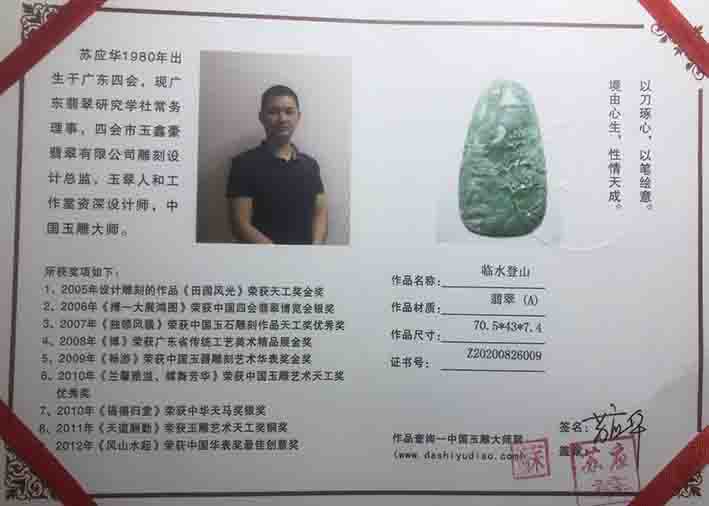 苏应华1980年出
生于广东四会，现广
东翡翠研究学社常务
理事，四会市玉鑫豪
翡翠有限公司雕刻设
计总监、玉翠人和工
作室资深设计师，中
国玉雕大师。
以刀琢心，以笔绘意。
境由心生，性情天成。
所获奖项如下：
1、2005年设计雕刻的作品《田园风光》荣获天工奖金奖
2、2006年《搏一大展鸿图》荣获中国四会翡翠博览会银奖
3、2007年《独领风骚》荣获中国玉石雕刻作品天工奖优秀奖
4、2008年《博》荣获广东省传统工艺美术精品展金奖
5、2009年《畅游》荣获中国玉器雕刻艺术华表奖金奖
6、2010年《兰馨雅溢、蝶舞芳华》荣获中国玉雕艺术天工奖
优秀奖
7、2010年《福禧归堂》荣获中华天马奖银奖
8、2011年《天道酬勤》荣获玉雕艺术天工奖铜奖
2012年《风山水起》荣获中国华表奖最佳创意奖
作品名称： 临水登山
作品材质： 翡翠 (A)
作品尺寸： 70.5*43*7.4
证书号： Z20200826009
签名： 苏应华
作品查询一中国玉雕大师网
(www.dashiyudiao.com)
苏应